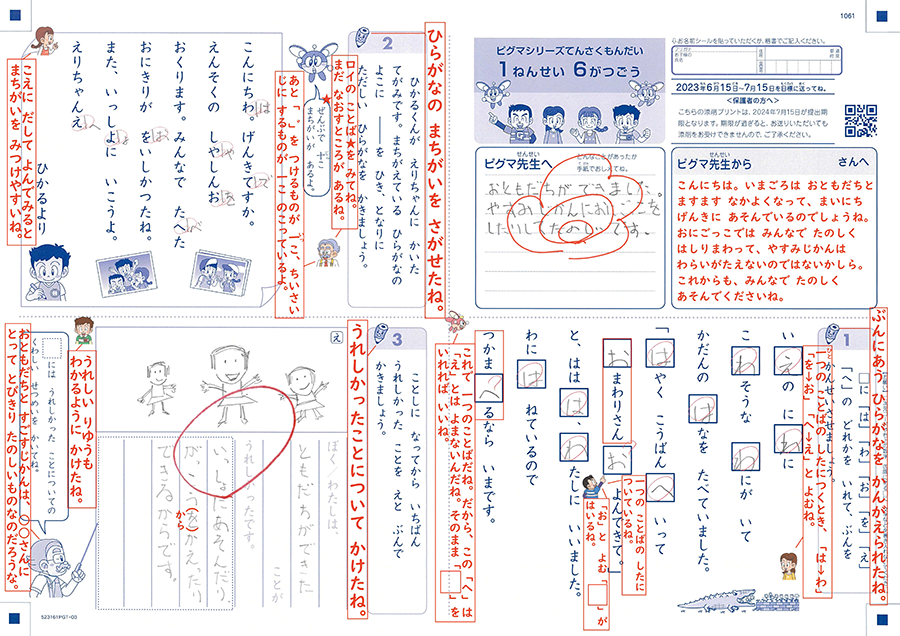 1061
ピグマシリーズてんさくもんだい
1ねんせい 6がつごう
↓お名前シールを貼っていただくか、楷書でご記入ください。
2023年6月15日~7月15日を目標に送ってね。
<保護者の方へ>
こちらの添削プリントは、2024年9月15日が提出期
限となります。期限が過ぎると、お送りいただいても
添削をお受けできませんので、ご了承ください。
ピグマ先生へ
せんせい
どんなことがあったか
手紙でおしえてね。
おともだちができました。
やすみじかんにおにごっこを
したりしてたのしいです。
ピグマ先生から
せんせい
さんへ
こんにちは。いまごろは おともだちと
ますます なかよくなって、まいにち
げんきに あそんでいるのでしょうね。
おにごっこでは みんなで たのしく
はしりまわって、やすみじかんは
わらいがたえないのではないかしら。
これからも、みんなで たのしく
あそんでくださいね。
ぶんにあう ひらがなを かんがえられたね。
1
□に 「は」「わ」「お」「を」「え」
「へ」の どれかを いれて、ぶんを
かんせいさせましょう。
一つの ことばの したにつくとき、「は→わ」
「を→お」「へ→え」と よむね。
いえの にわに
こわそうな わにが いて
かだんの はなを たべていました。
「はやく こうばんへ いって
おまわりさんを よんできて。」
一つの ことばの したに
ついているね。
「お」と よむ「□」が
はいるね。
と、ははは、わたしに いいました。
わには ねているので
つかまへるなら いまです。
これで 一つのことばだね。だから、この「へ」は
「え」とは よまないんだね。そのまま「□」を
いれれば いいね。
ひらがなの まちがいを さがせたね。
2
ひかるくんが えりちゃんに かいた
てがみです。まちがえている ひらがなの
よこに ―を ひき、となりに
ただしい ひらがなを かきましょう。
ロイの ことば★を みてね。
まだ なおすところが あるね。
★
ぜんぶで 十こ
まちがいが あるよ。
あと「、」を つけるものが 一こ、ちいさい
じに するものが 一こ のこっているよ。
こんにちわ。げんきてすか。
は
で
えんそくの しやしんお
ゃ
を
おくります。みんなで たへた
べ
おにきりが をいしかつたね。
お
また、いっしよに いこうよ。
ょ
えりちゃんえ
へ
ひかるより
こえに だして よんでみると
まちがいを みつけやすいね。
うれしかったことについて かけたね。
3
ことしに なってから いちばん
うれしかった ことを えと ぶんで
かきましょう。
え
ぼく・わたしは、
ともだちができた
ことが
うれしかったです。
いっしょにあそんだり、
がっこうをかえったり
から
できるからです。
うれしい りゆうも
わかるように かけたね。
には うれしかった ことについての
くわしい せつめいを かいてね。
おともだちと すごすじかんは、〇〇さんに
とって とびきり たのしいものなのだろうな。
523161PGT-00